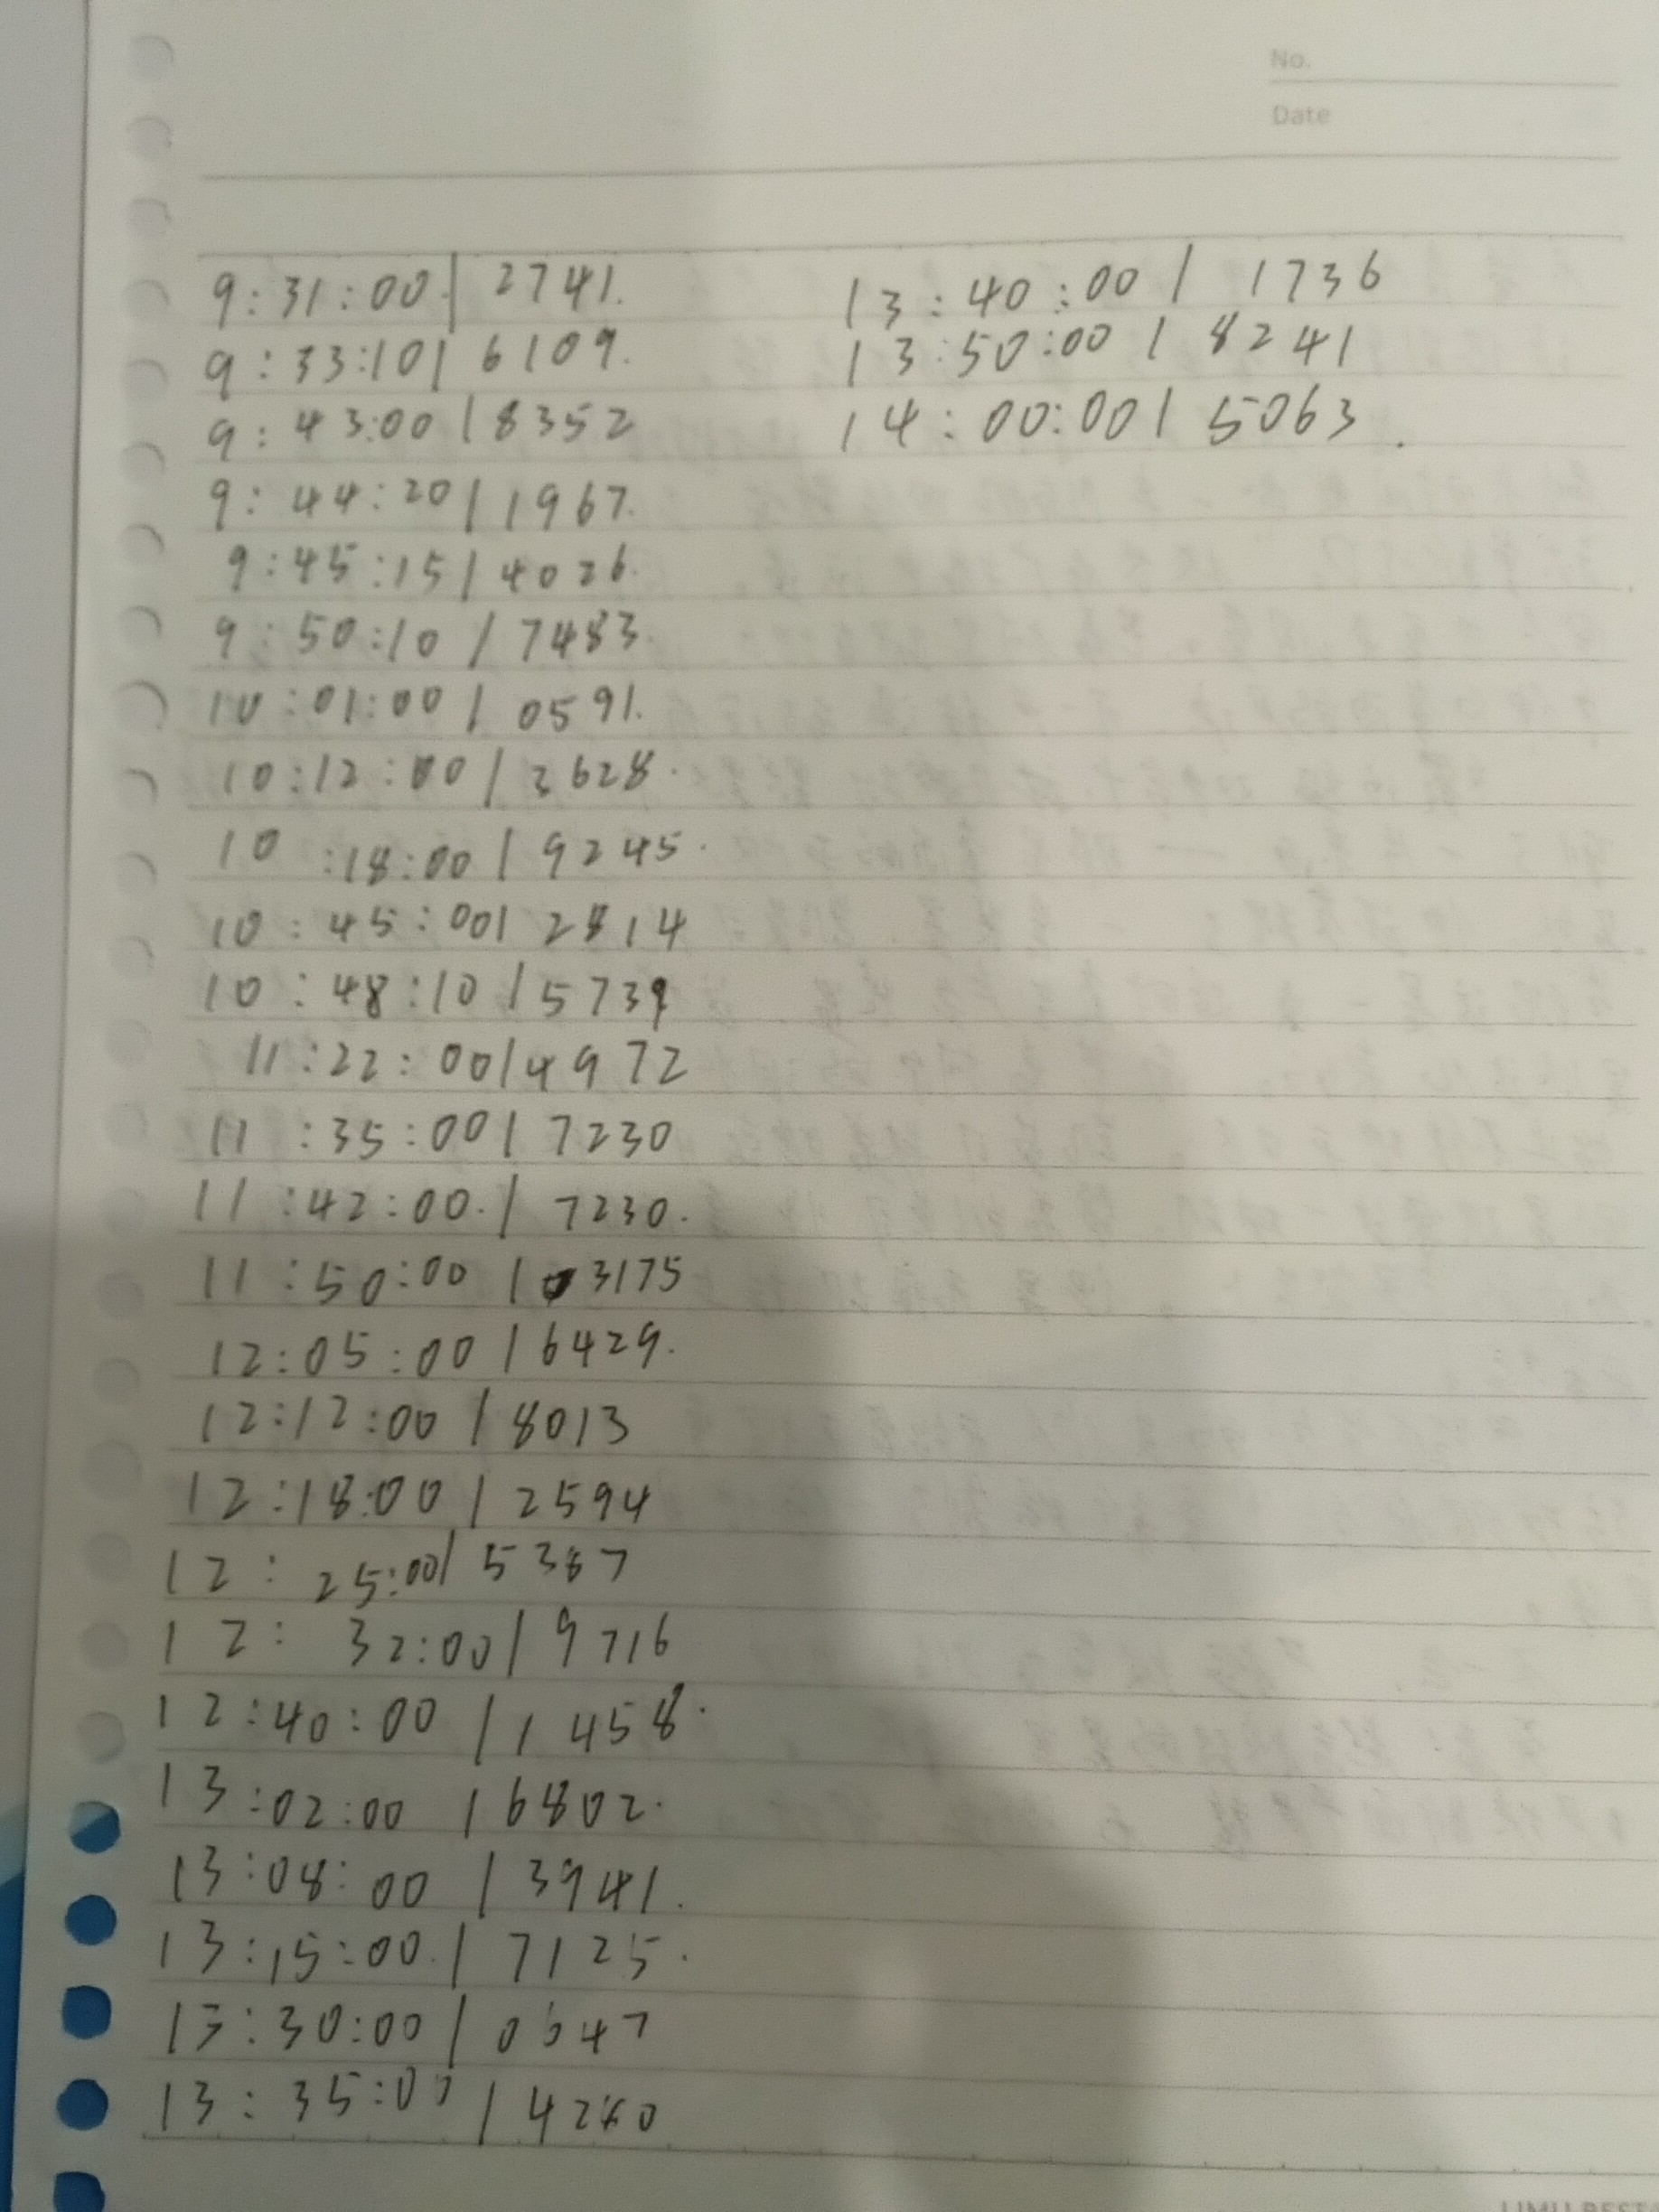 No.
Date
9:31:00 | 2741.
9:33:10 | 6109.
9:43:00 | 8352
9:44:20 | 1967.
9:45:15 | 4026.
9:50:10 | 7483.
10:01:00 | 0591.
10:12:00 | 3628.
10:18:00 | 9245.
10:45:00 | 2814
10:48:10 | 5739
11:22:00 | 4972
11:35:00 | 7230
11:42:00. | 7230.
11:50:00 | 3175
12:05:00 | 6429.
12:12:00 | 8013
12:18:00 | 2594
12:25:00 | 5387
12:32:00 | 9716
12:40:00 | 1458.
13:02:00 | 6802.
13:08:00 | 3941.
13:15:00. | 7125.
13:30:00 | 0647
13:35:00 |
13:40:00 | 1736
13:50:00 | 8241
14:00:00 | 5063.